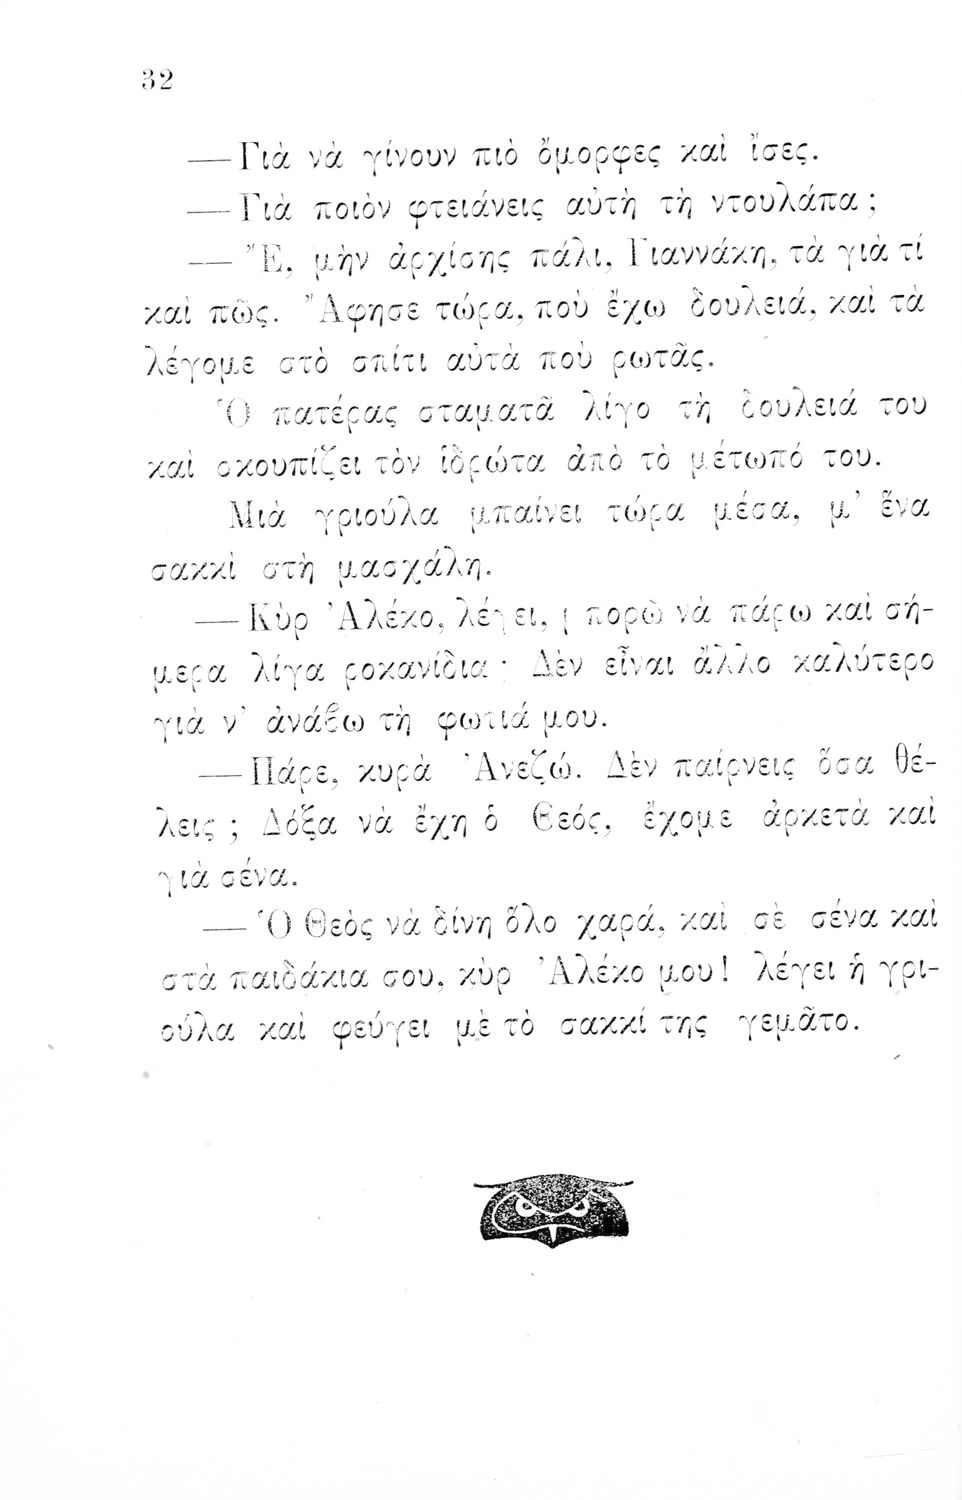 32
— Γιὰ νὰ γίνουν πιὸ ὄμορφες καὶ ἴσες.
— Γιὰ ποιὸν φτειάνεις αὐτὴ τὴ ντουλάπα ;
— Ἔ, μὴν ἀρχίσης πάλι, Γιαννάκη, τὰ γιὰ τί
καὶ πῶς. Ἄφησε τώρα, ποὺ ἔχω δουλειά, καὶ τὰ
λέγομε στὸ σπίτι αὐτὰ ποὺ ρωτᾶς.
Ὁ πατέρας σταματᾶ λίγο τὴ δουλειά του
καὶ σκουπίζει τὸν ἱδρώτα ἀπὸ τὸ μέτωπό του.
Μιὰ γριούλα μπαίνει τώρα μέσα, μ’ ἕνα
σακκὶ στὴ μασχάλη.
— Κὺρ Ἀλέκο, λέγει, μπορῶ νὰ πάρω καὶ σή-
μερα λίγα ροκανίδια· Δὲν εἶναι ἄλλο καλύτερο
γιὰ ν’ ἀνάβω τὴ φωτιά μου.
— Πάρε, κυρὰ Ἀνεζώ. Δὲν παίρνεις ὅσα θέ-
λεις ; Δόξα νὰ ἔχη ὁ Θεός, ἔχομε ἀρκετὰ καὶ
γιὰ σένα.
— Ὁ Θεὸς νὰ δίνη ὅλο χαρά, καὶ σὲ σένα καὶ
στὰ παιδάκια σου, κὺρ Ἀλέκο μου! λέγει ἡ γρι-
ούλα καὶ φεύγει μὲ τὸ σακκί της γεμᾶτο.